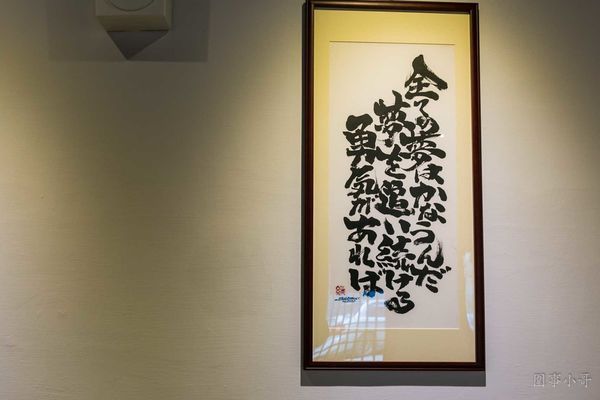 全ての夢はかなうんだ
夢を追い続ける
勇気があれば